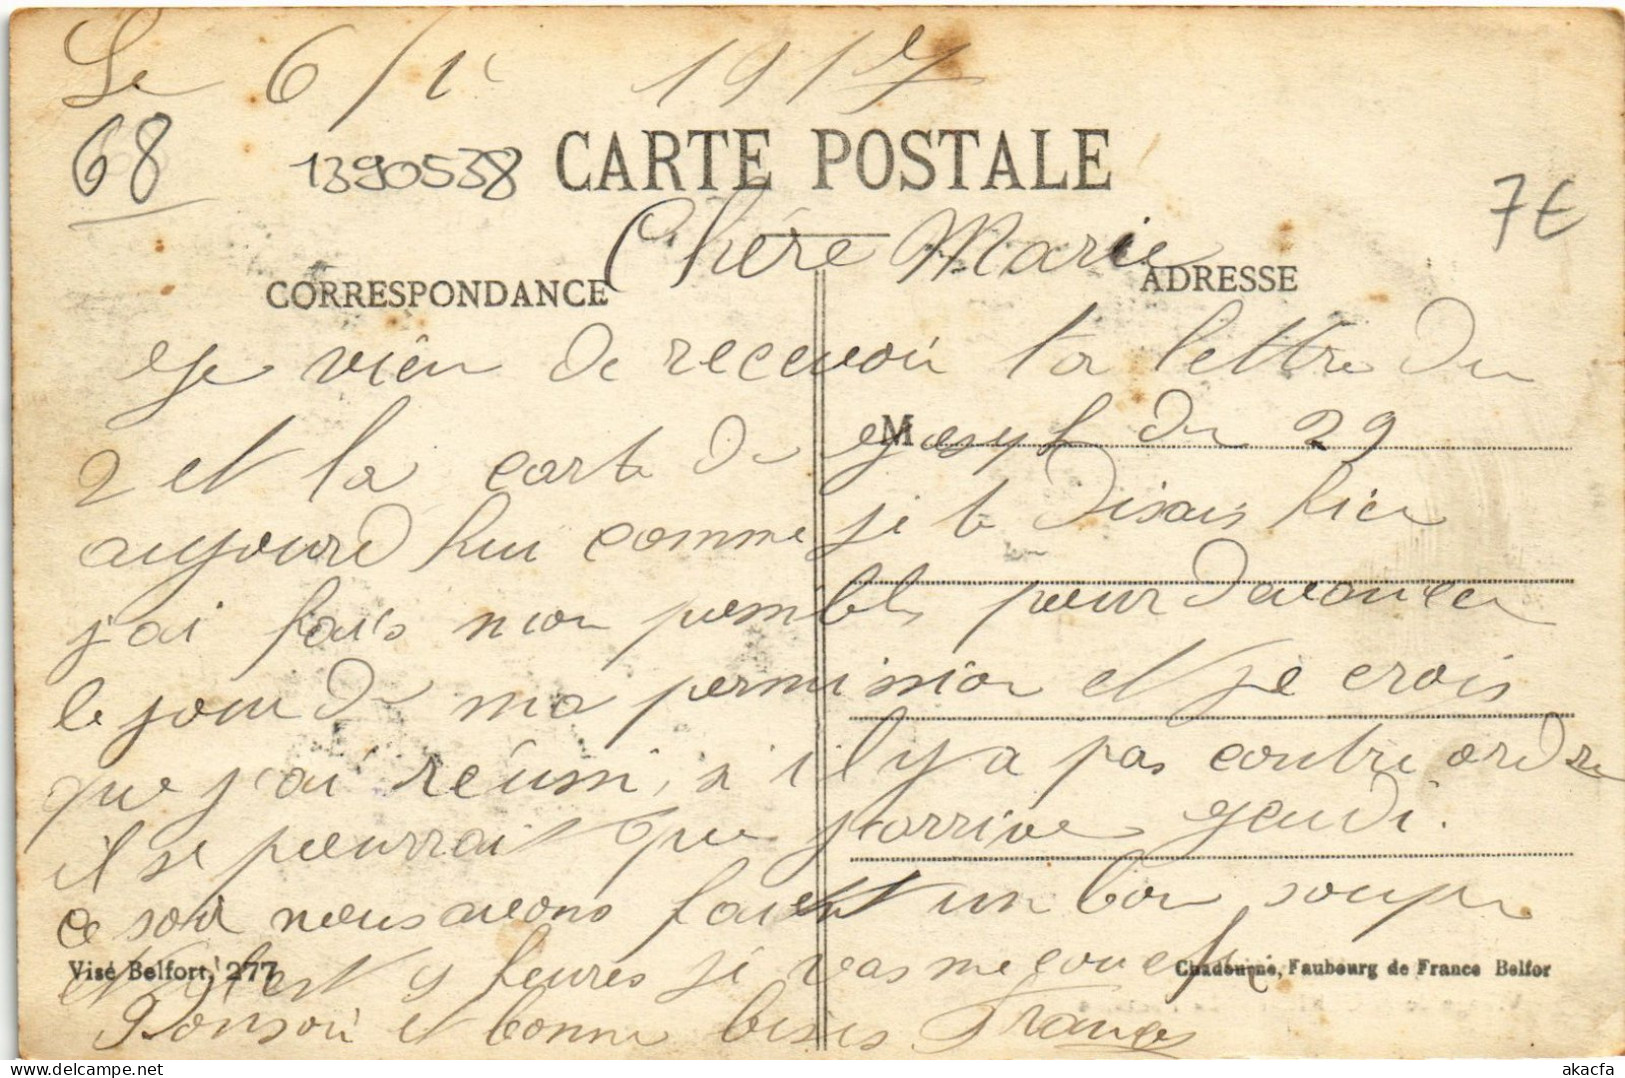 Le 6/1 1917
68
1390538
CARTE POSTALE
7€
Chére Marie
CORRESPONDANCE
ADRESSE
je vien de recevoir ta lettre du
M
2 et la carte de du 29
aujourd hui comme je te disais hier
j'ai fais mon possible pour davancer
le jour de ma permission et je crois
que j'ai réussi, s'i il y a pas contre ordre
il se pourrait que j'arrive jeudi.
ce soir nous avons fait un bon souper
Visé Belfort, 277
Chadourne, Faubourg de France Belfor
et il est 9 heures je vas me coucher
Bonsoir et bonne bises Français
akacfa